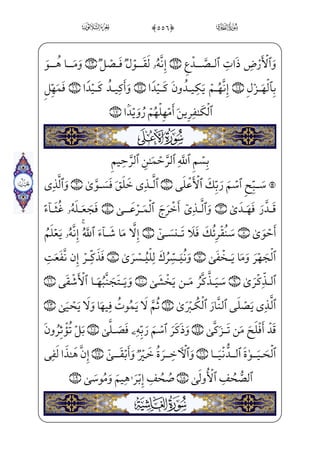 سُورَةُ الطَّارِقِ ﴿٥٥٦﴾ الجُزْءُ الثَّلَاثُونَ
وَٱلْأَرْضِ ذَاتِ ٱلصَّدْعِ ١٢ إِنَّهُۥ لَقَوْلٌ فَصْلٌ ١٣ وَمَا هُوَ
بِٱلْهَزْلِ ١٤ إِنَّهُمْ يَكِيدُونَ كَيْدًا ١٥ وَأَكِيدُ كَيْدًا ١٦ فَمَهِّلِ
ٱلْكَٰفِرِينَ أَمْهِلْهُمْ رُوَيْدًۢا ١٧
سُورَةُ الْأَعْلَىٰ
بِسْمِ ٱللَّهِ ٱلرَّحْمَٰنِ ٱلرَّحِيمِ
۞ سَبِّحِ ٱسْمَ رَبِّكَ ٱلْأَعْلَى ١ ٱلَّذِى خَلَقَ فَسَوَّىٰ ٢ وَٱلَّذِى
قَدَّرَ فَهَدَىٰ ٣ وَٱلَّذِىٓ أَخْرَجَ ٱلْمَرْعَىٰ ٤ فَجَعَلَهُۥ غُثَآءً
أَحْوَىٰ ٥ سَنُقْرِئُكَ فَلَا تَنسَىٰٓ ٦ إِلَّا مَا شَآءَ ٱللَّهُ ۚ إِنَّهُۥ يَعْلَمُ
ٱلْجَهْرَ وَمَا يَخْفَىٰ ٧ وَنُيَسِّرُكَ لِلْيُسْرَىٰ ٨ فَذَكِّرْ إِن نَّفَعَتِ
ٱلذِّكْرَىٰ ٩ سَيَذَّكَّرُ مَن يَخْشَىٰ ١٠ وَيَتَجَنَّبُهَا ٱلْأَشْقَى ١١
ٱلَّذِى يَصْلَى ٱلنَّارَ ٱلْكُبْرَىٰ ١٢ ثُمَّ لَا يَمُوتُ فِيهَا وَلَا يَحْيَىٰ ١٣
قَدْ أَفْلَحَ مَن تَزَكَّىٰ ١٤ وَذَكَرَ ٱسْمَ رَبِّهِۦ فَصَلَّىٰ ١٥ بَلْ تُؤْثِرُونَ
ٱلْحَيَوٰةَ ٱلدُّنْيَا ١٦ وَٱلْءَاخِرَةُ خَيْرٌ وَأَبْقَىٰٓ ١٧ إِنَّ هَٰذَا لَفِى
ٱلصُّحُفِ ٱلْأُولَىٰ ١٨ صُحُفِ إِبْرَٰهِيمَ وَمُوسَىٰ ١٩
سُورَةُ الْغَاشِيَةِ